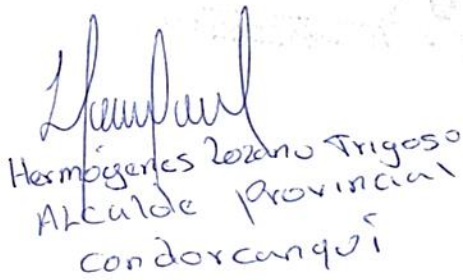 Hermógenes Lozano Trigoso
Alcalde Provincial
Condorcanqui